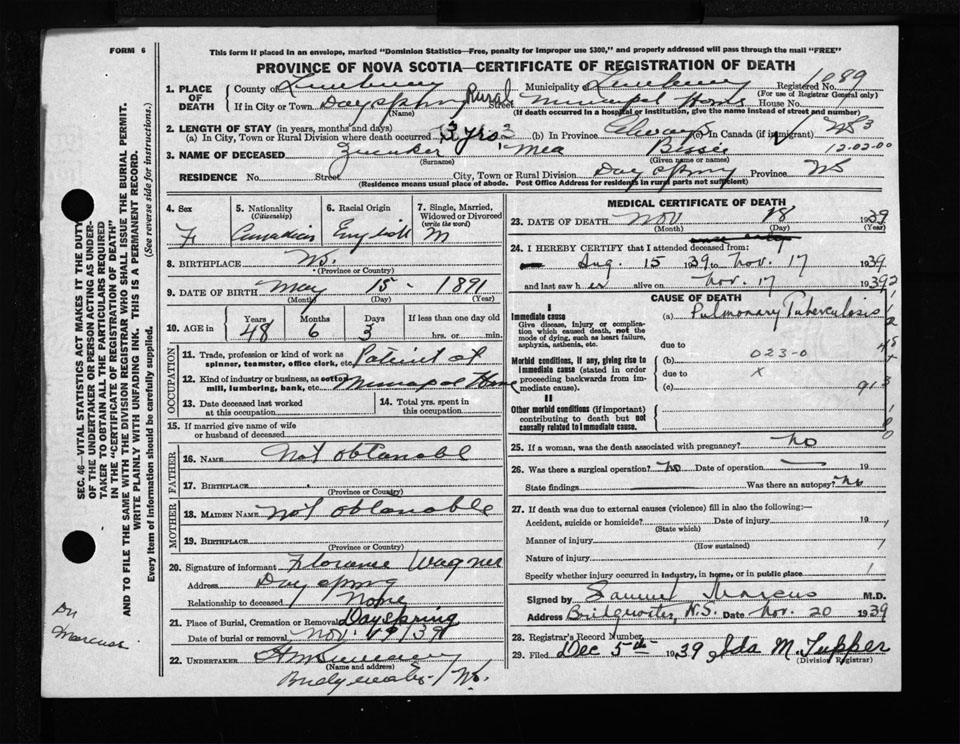 FORM 6
This form if placed in an envelope, marked "Dominion Statistics—Free, penalty for improper use $300," and properly addressed will pass through the mail "FREE"
PROVINCE OF NOVA SCOTIA—CERTIFICATE OF REGISTRATION OF DEATH
1. PLACE OF DEATH
County of Lunenburg Municipality of Lunenburg Registered No. 1989
(For use of Registrar General only)
If in City or Town Dayspring Rural Street Municipal Home House No.
(Name) (If death occurred in a hospital or institution, give name instead of street and number)
2. LENGTH OF STAY (in years, months and days)
(a) In City, Town or Rural Division where death occurred 3 yrs (b) In Province Always (c) In Canada (if immigrant)
3. NAME OF DECEASED Mea Bessie 12-02-00
(Surname) (Given name or names)
RESIDENCE No. Street City, Town or Rural Division Dayspring Province NS
(Residence means usual place of abode. Post Office Address for residents in rural parts not sufficient)
4. Sex
F
5. Nationality
(Citizenship)
Canadian
6. Racial Origin
English
7. Single, Married, Widowed or Divorced
(write the word)
M
8. BIRTHPLACE NS.
(Province or Country)
9. DATE OF BIRTH May 15 - 1891
(Month) (Day) (Year)
10. AGE in Years Months Days If less than one day old
48 6 3 hrs. or min.
OCCUPATION
11. Trade, profession or kind of work as spinner, teamster, office clerk, etc. Patient of
12. Kind of industry or business, as cotton mill, lumbering, bank, etc. Municipal Home
13. Date deceased last worked at this occupation
14. Total yrs. spent in this occupation
15. If married give name of wife or husband of deceased
FATHER
16. NAME Not obtanable
17. BIRTHPLACE
(Province or Country)
MOTHER
18. MAIDEN NAME Not obtanable
19. BIRTHPLACE
(Province or Country)
20. Signature of informant Florance Wagner
Address Dayspring
Relationship to deceased None
21. Place of Burial, Cremation or Removal Dayspring
Date of burial or removal Nov. 19/39
22. UNDERTAKER
(Name and address)
Bridgewater, NS.
MEDICAL CERTIFICATE OF DEATH
23. DATE OF DEATH Nov 18 1939
(Month) (Day) (Year)
24. I HEREBY CERTIFY that I attended deceased from:
Aug. 15 1939 to Nov. 17 1939
and last saw her alive on Nov. 17 1939
CAUSE OF DEATH
I
Immediate cause
Give disease, injury or complication which caused death, not the mode of dying, such as heart failure, asphyxia, asthenia, etc.
(a) Pulmonary Tuberculosis
due to
Morbid conditions, if any, giving rise to immediate cause (stated in order proceeding backwards from immediate cause).
(b) 023-0
due to x
(c) 913
II
Other morbid conditions (if important) contributing to death but not causally related to immediate cause.
25. If a woman, was the death associated with pregnancy? no
26. Was there a surgical operation? no Date of operation — 19
State findings Was there an autopsy? no
27. If death was due to external causes (violence) fill in also the following:—
Accident, suicide or homicide? Date of injury 19
(State which)
Manner of injury
(How sustained)
Nature of injury
Specify whether injury occurred in industry, in home, or in public place
Signed by Samuel Marcus M.D.
Address Bridgewater, N.S. Date Nov. 20 1939
28. Registrar's Record Number
29. Filed Dec 5th 1939 Ida M. Tupper
(Division Registrar)
SEC. 46—VITAL STATISTICS ACT MAKES IT THE DUTY OF THE UNDERTAKER OR PERSON ACTING AS UNDERTAKER TO OBTAIN ALL THE PARTICULARS REQUIRED IN THE "CERTIFICATE OF REGISTRATION OF DEATH" AND TO FILE THE SAME WITH THE DIVISION REGISTRAR WHO SHALL ISSUE THE BURIAL PERMIT.
WRITE PLAINLY WITH UNFADING INK. THIS IS A PERMANENT RECORD.
Every item of information should be carefully supplied. (See reverse side for instructions.)
Dr Marcus